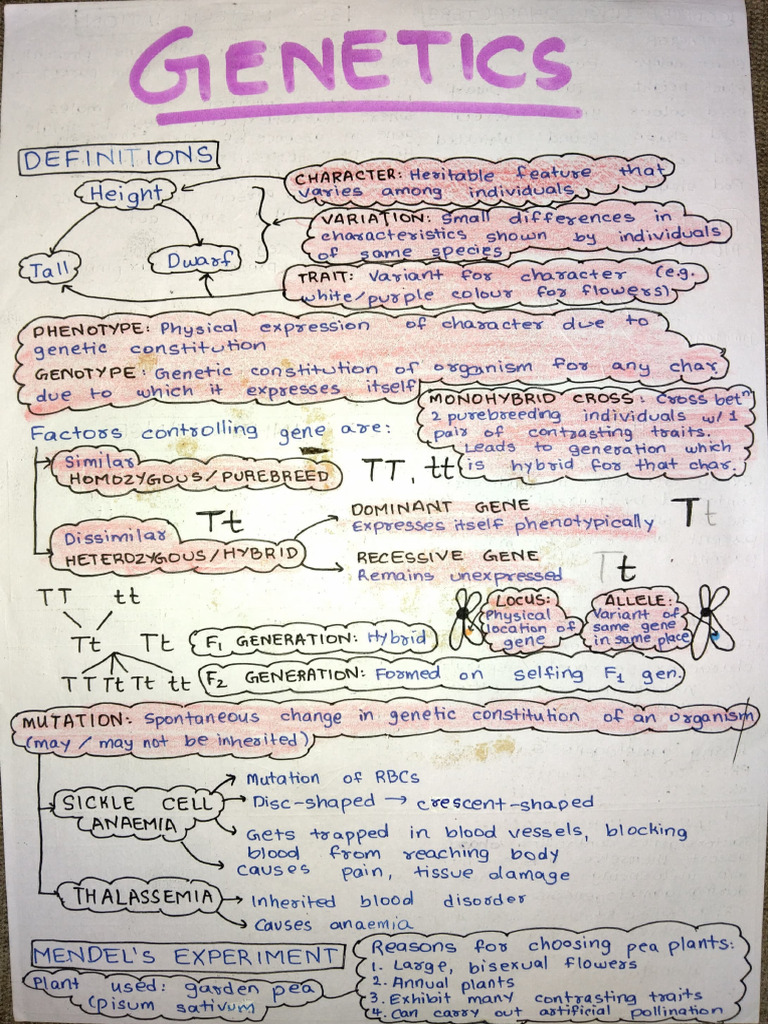 GENETICS
DEFINITIONS
Height
Tall
Dwarf
CHARACTER: Heritable feature that
varies among individuals
VARIATION: Small differences in
characteristics shown by individuals
of same species
TRAIT: Variant for character (e.g.
white/purple colour for flowers)
PHENOTYPE: Physical expression of character due to
genetic constitution
GENOTYPE: Genetic constitution of organism for any char.
due to which it expresses itself
MONOHYBRID CROSS: Cross betⁿ
2 purebreeding individuals w/ 1
pair of contrasting traits.
Leads to generation which
is hybrid for that char.
Factors controlling gene are:
Similar
HOMOZYGOUS/PUREBREED
TT, tt
Dissimilar
HETEROZYGOUS/HYBRID
Tt
DOMINANT GENE
Expresses itself phenotypically
Tt
RECESSIVE GENE
Remains unexpressed
Tt
TT tt
Tt Tt
TT Tt Tt tt
F₁ GENERATION: Hybrid
F₂ GENERATION: Formed on selfing F₁ gen.
LOCUS:
Physical
location of
gene
ALLELE:
Variant of
same gene
in same place
MUTATION: Spontaneous change in genetic constitution of an organism
(may / may not be inherited)
SICKLE CELL
ANAEMIA
Mutation of RBCs
Disc-shaped → crescent-shaped
Gets trapped in blood vessels, blocking
blood from reaching body
causes pain, tissue damage
THALASSEMIA
Inherited blood disorder
Causes anaemia
MENDEL'S EXPERIMENT
Plant used: garden pea
(pisum sativum
Reasons for choosing pea plants:
1. Large, bisexual flowers
2. Annual plants
3. Exhibit many contrasting traits
4. Can carry out artificial pollination